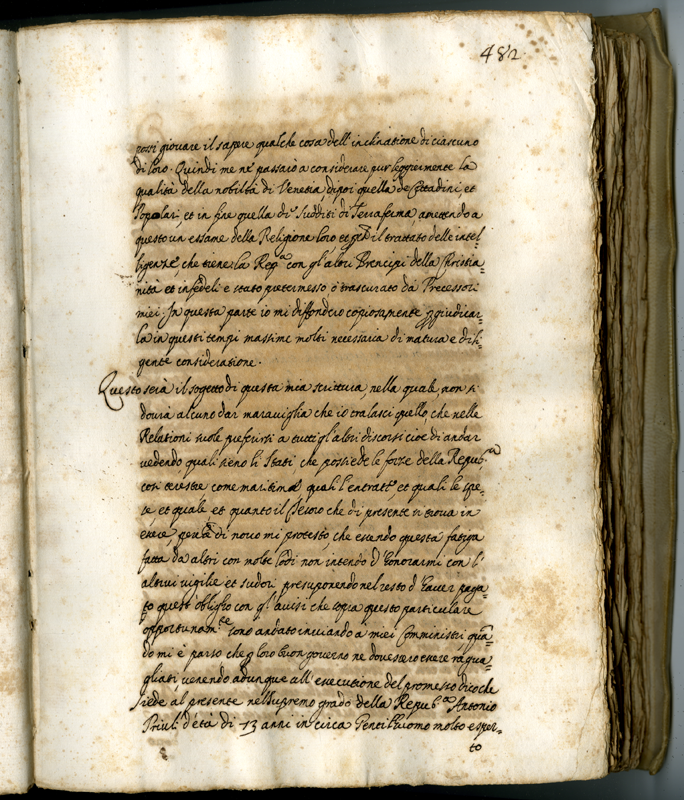 482
possi giovare il sapere qualche cosa dell'inclinatione di ciascuno
di loro. Quindi me ne passaiò a considerare pur leggiermente la
qualità della nobiltà di Venetia dipoi quella de Cittadini, et
Popolari, et in fine quella di Sudditi di Terraferma, annettendo a
questo un essame della Religione loro, et il trattato delle intel-
ligenze, che tiene la Rep.ca con gl'altri Prencipi della Christia-
nità et infedeli e stato pretermesso ò trascurato da Precessori
miei. In questa parte io mi diffonderò copiosamente giudican-
la in questi tempi massime molto necessaria di matura e dili-
gente consideratione.
Questo serà il sogetto di questa mia scrittura, nella quale non si
dourà alcuno dar maraviglia che io tralasci quello che nelle
Relationi suole preferirsi a tutti gl'altri discorsi cioè di andar
vedendo quali sieno li Stati che possiede le forze della Repub.ca
cosi terestre come maritime quali l'entratte et quali le spe-
se et quale et quanto il Tesoro che di presente si trova in
essere, di novo mi protesto, che essendo questa fatiga
fatta da altri con molte lodi non intendo d'honorarmi con l'
altrui vigilie et sudori presuponendo nel resto d'haver paga-
to quest'obligho con gl'avisi che sopra questo particulare
opportunam.te sono andato inviando a miei Comministri, quã-
do mi è parso che loro buon governo ne dovessero essere ragua-
gliati, venendo adunque all'essecutione del promesso dico che
siede al presente nel supremo grado della Repub.ca Antonio
Priuli d'età di 73 anni in circa Gentilhuomo molto esper-
to